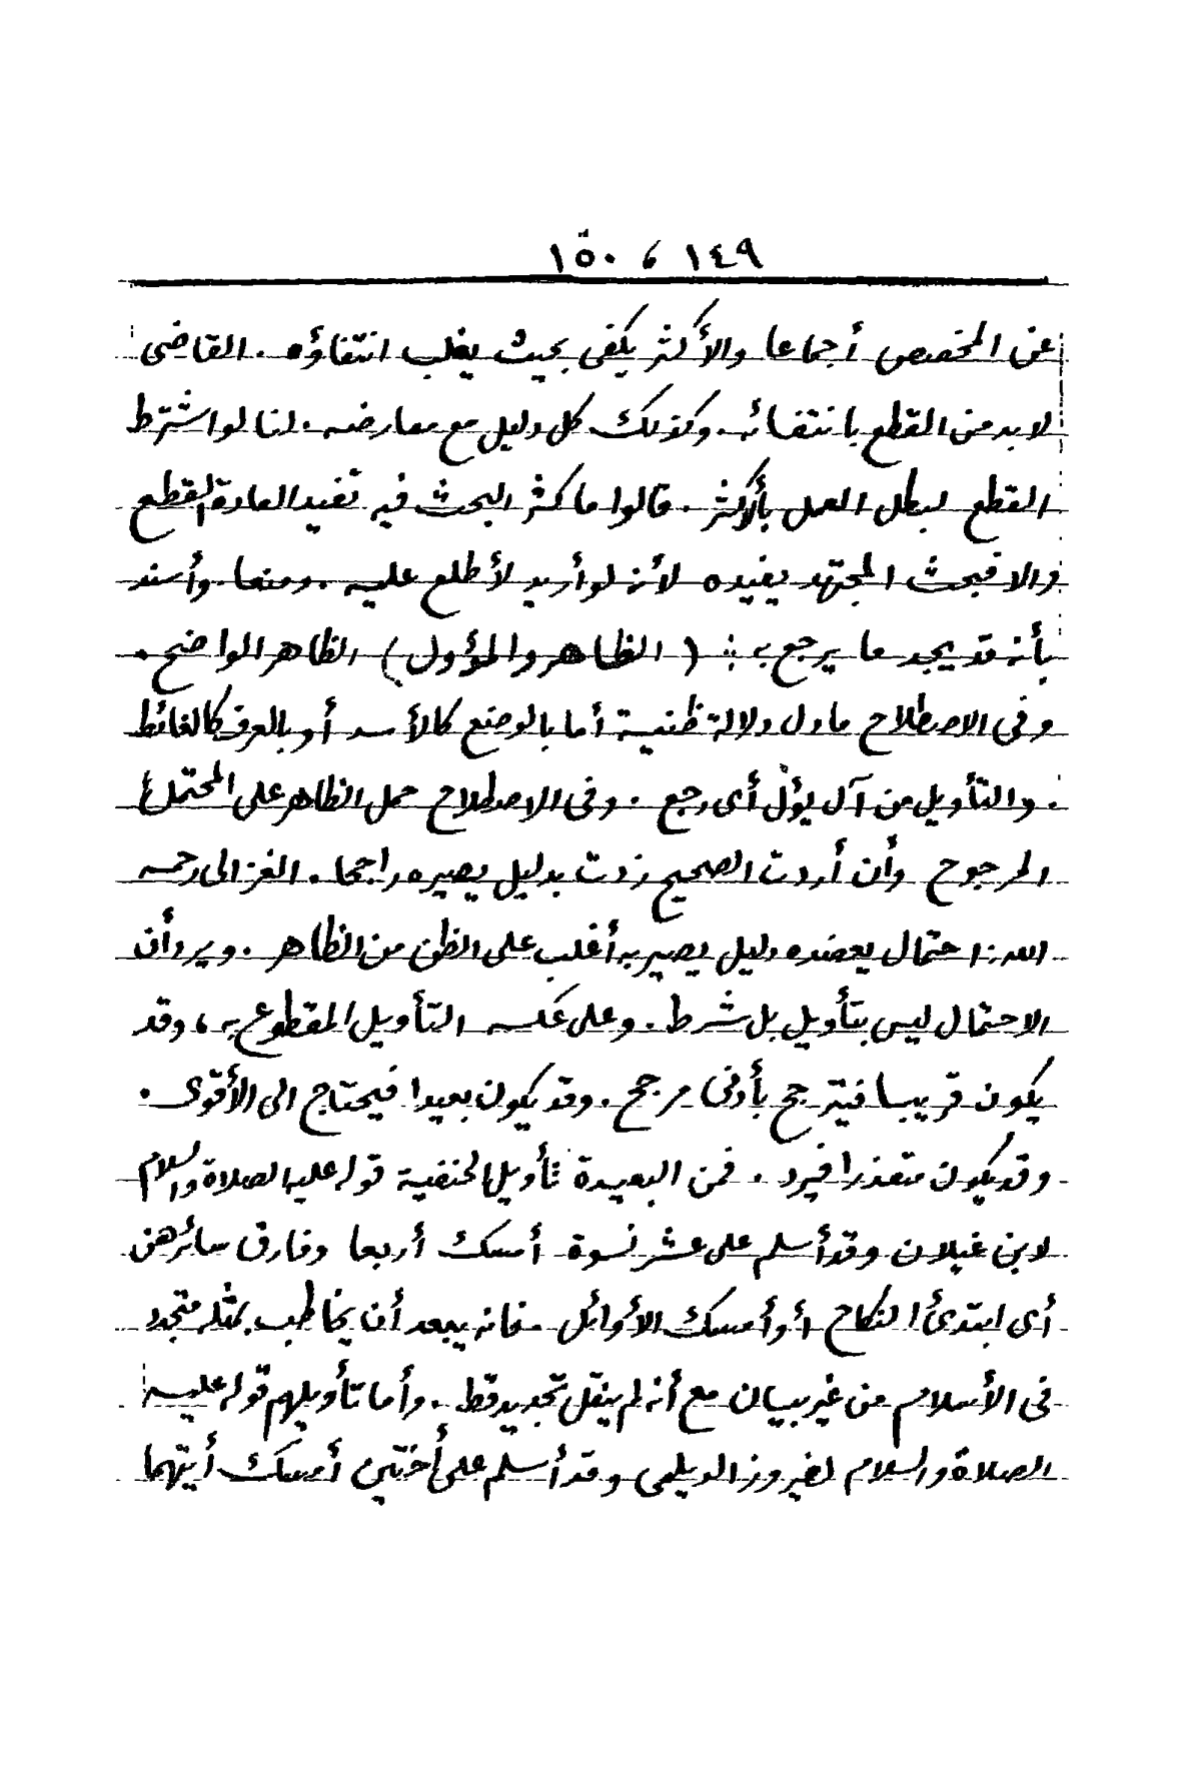 ١٤٩ ، ١٥٠
عن المخصص أجماعا والأكثر يكفى بحيث يغلب انتفاؤه . القاضى
لا بد من القطع بانتفائه . وكذلك كل دليل مع معارضه . لنا لو اشترط
القطع لبطل العمل بالأكثر . قالوا ما كثر البحث فيه تفيد العادة القطع
والا فبحث المجتهد يفيده لأنه لو أريد لأطلع عليه . ومنعا . وأسند
بأنه قد يجد ما يرجع به : ( الظاهر والمؤول ) الظاهر الواضح .
وفى الاصطلاح ما دل دلالة ظنية أما بالوضع كالأسد أو بالعرف كالغائط
. والتأويل من آل يؤل أى رجع . وفى الاصطلاح حمل الظاهر على المحتمل
المرجوح وأن أردت الصحيح زدت بدليل يصيره راجحا . الغزالى رحمه
الله : احتمال يعضده دليل يصير به أغلب على الظن من الظاهر . ويرد أن
الاحتمال ليس بتأويل بل شرط . وعلى عكسه التأويل المقطوع به ، وقد
يكون قريبا فيترجح بأدنى مرجح . وقد يكون بعيدا فيحتاج الى الأقوى .
وقد يكون متعذرا فيرد . فمن البعيدة تأويل الحنفية قوله عليه الصلاة والسلام
لابن غيلان وقد أسلم على عشر نسوة أمسك أربعا وفارق سائرهن
أى ابتدئ النكاح أو أمسك الأوائل . فانه يبعد أن يخاطب بمثله متجدد
فى الأسلام من غير بيان مع أنه لم ينقل تجديد قط . وأما تأويلهم قوله عليه
الصلاة والسلام لفيروز الديلمى وقد أسلم على أختين أمسك أيتهما